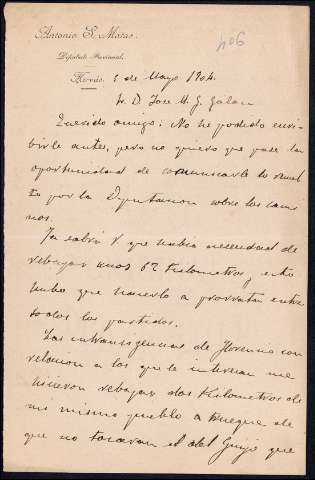 904
Antonio S. Matas
Diputado Provincial
Hervás. 5 de Mayo 1904.
Sr. D. Jose M. G. Galan
Querido amigo: No he podido escri-
birle antes, pero no quiero que pase la
oportunidad de comunicarle lo resuel-
to por la Diputacion sobre los cami
nos.
Ya sabrá V. que habia necesidad de
rebajar unos 67 Kilometros, y esto
hubo que hacerlo a prorrata entre
todos los partidos.
Las intransigencias de Florencio con
relacion a los que le interesan me
hicieron rebajar dos Kilometros de
mi mismo pueblo a trueque de
que no tocaran el del Guijo que